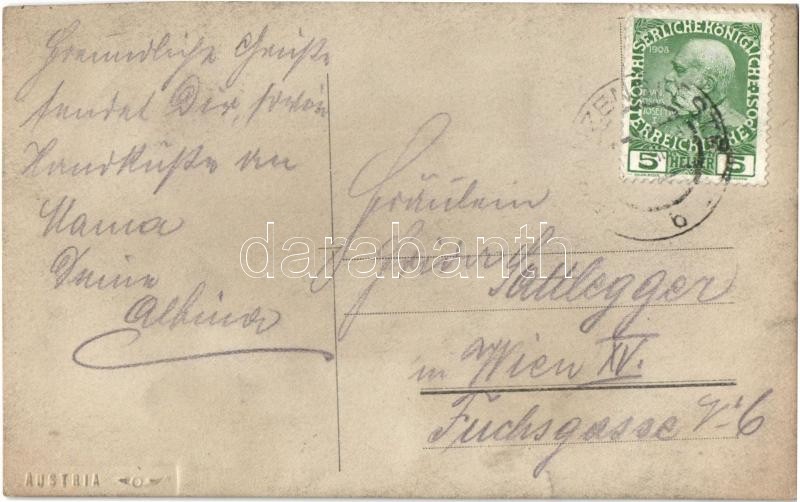 Freundliche Grüße
sendet Dir, sowie
Handküße an
Mama
Deine
Albina
Fräulein
Sattlegger
in Wien XV.
Fuchsgasse N: 6
KAISERLICHE KÖNIGLICHE
ÖSTERREICHISCHE POST
1908
5 HELLER 5
b
AUSTRIA
darabanth